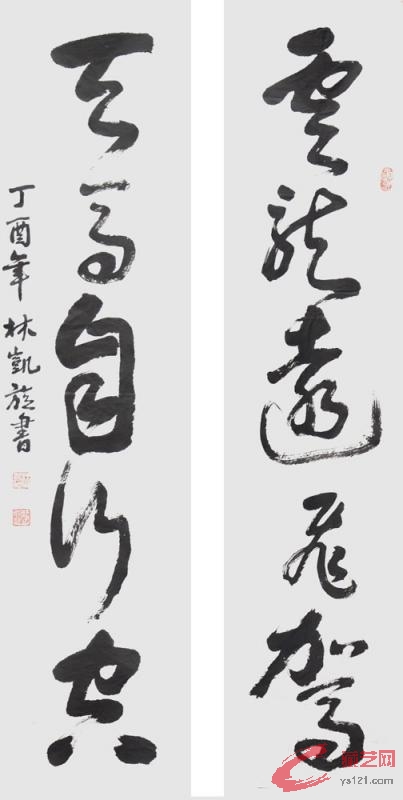 雲龍遠飛駕
天馬自行空
丁酉年林凱旋書
藏艺网
ys121.com